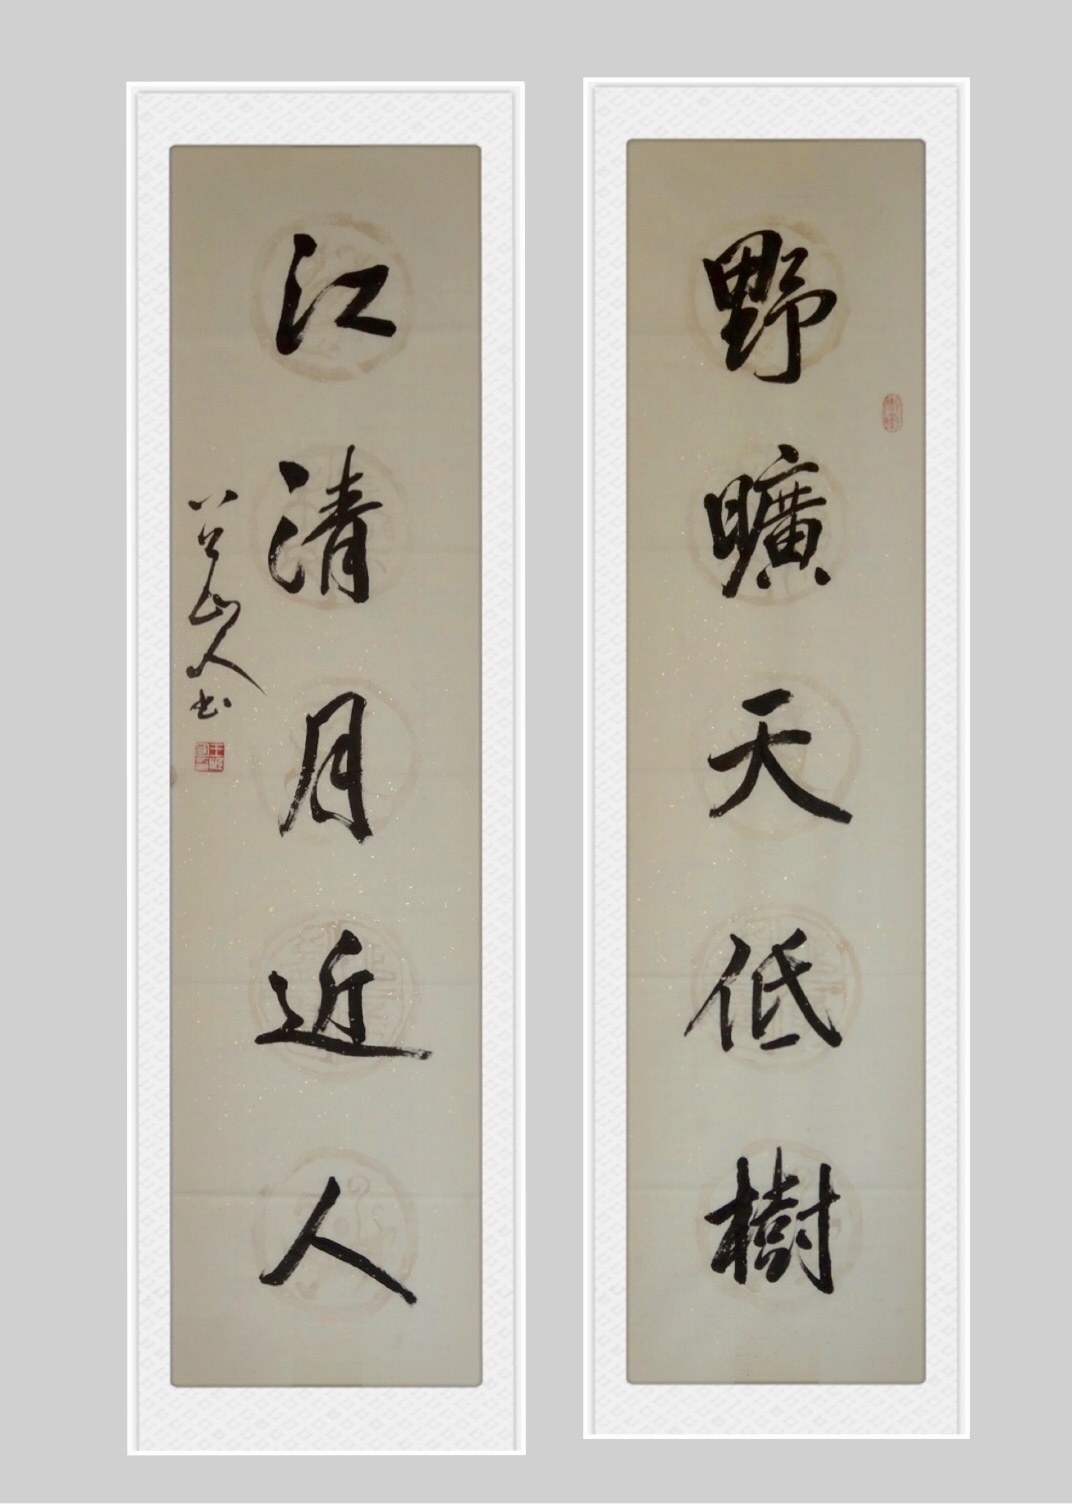 野曠天低樹
江清月近人
八公山人书